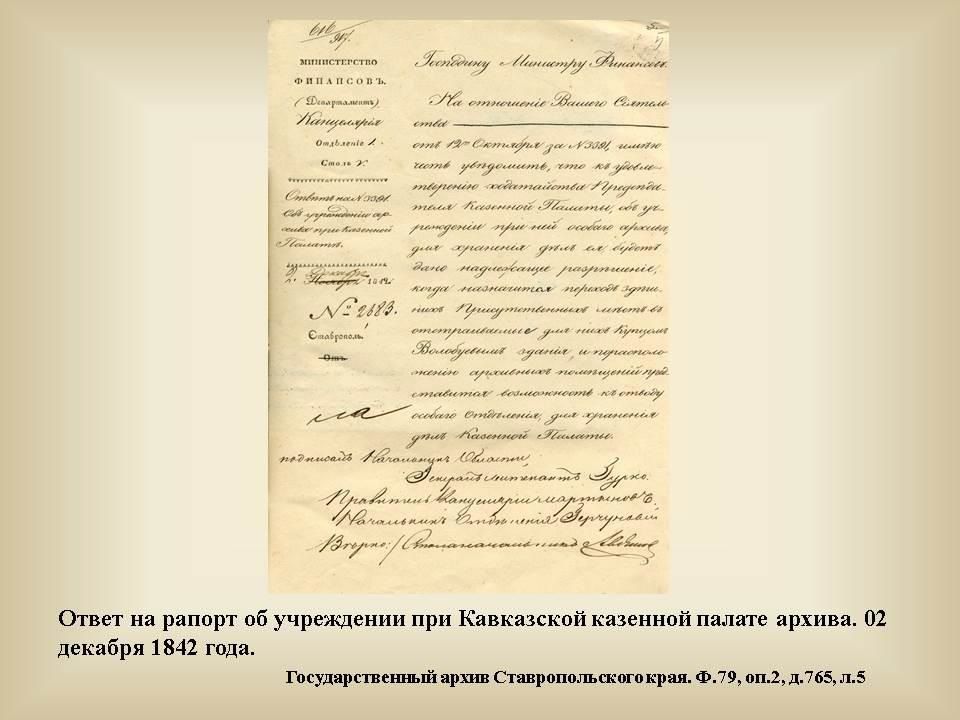 616
917.
МИНИСТЕРСТВО
ФИНАНСОВЪ.
(Департаментъ)
Канцелярія
Отдѣленіе 1.
Столъ
Отвѣтъ на N 3391.
Объ учрежденіи ар-
хива при Казенной
Палатѣ.
2. Декабря
Ноября 1842
№ 2683.
Ставрополь.
Отъ
Господину Министру Финансовъ.
На отношеніе Вашего Сіятель-
ства
отъ 12го Октября за N 3391, имѣю
честь увѣдомить, что къ удовле-
творенію ходатайства Предсѣда-
теля Казенной Палаты, объ уч-
режденіи при ней особаго архива,
для храненія дѣлъ ея, будетъ
дано надлежащее разрѣшеніе,
когда назначится переходъ здѣш-
нихъ Присутственныхъ мѣстъ въ
отстраиваемые для нихъ Купцомъ
Волобуевымъ зданія, и порасполо-
женію архивныхъ помѣщеній пред-
ставится возможность къ отводу
особаго Отдѣленія, для храненія
дѣлъ Казенной Палаты.
подписалъ Начальникъ Области
Генералъ Лейтенантъ Гурко.
Правитель Канцеляріи Мартыновъ
Начальникъ Отдѣленія
Вѣрно: Столоначальникъ
Ответ на рапорт об учреждении при Кавказской казенной палате архива. 02
декабря 1842 года.
Государственный архив Ставропольского края. Ф.79, оп.2, д.765, л.5